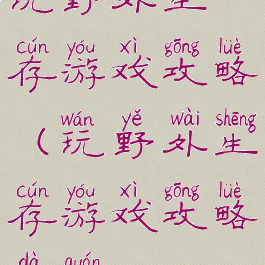 玩野外生
cún yóu xì gōng lüè
存游戏攻略
wán yě wài shēng
（玩野外生
cún yóu xì gōng lüè
存游戏攻略
dà quán